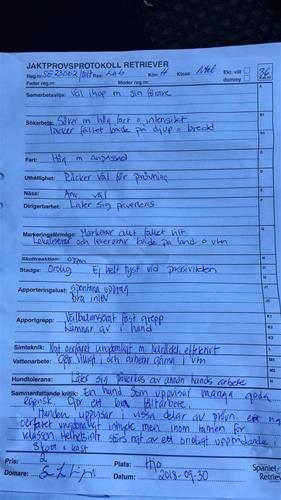 JAKTPROVSPROTOKOLL RETRIEVER
Reg.nr Ras: Lab Kön: H Klass: Nkl Ekl: vilt
dummy
Fader reg.nr: Moder reg.nr:
Samarbetsvilja: Väl ihop m sin förare A
Sökarbete: Söker m hög fart o intensitet B1
täcker fältet både på djup o bredd
Fart: Hög m anpassad
Uthållighet: Räcker väl för prövning
Näsa: Anv väl
Dirigerbarhet: Låter sig påverkas
Markeringsförmåga: Markerar ut fallet vilt
Lokaliserar och levererar både på land o vtn
Skottreaktion:
Stadga: Orolig Ej helt tyst vid passiviteten
Apporteringslust: Spontana upptag
bra intev
Apportgrepp: Välbalanserat fast grepp K1
Lämnar av i hand K2
Simteknik: Ngt oerfaret ungdomligt m effektivt
Vattenarbete: Går villigt i och arbetar gärna i vtn M1
M2
Hundtolerans: Låter sig påverkas av annan hunds arbete N
Sammanfattande kritik: En hund som uppvisar många goda
egensk. Gör ett bra fältarbete.
Hunden uppvisar i vissa delar av prövn. ett ngt
oerfaret ungdomligt intryck men inom ramen för
klassen Helhetsintr störs ngt av ett oroligt uppträdande i
Pris: 2 Plats: Spaniel-
Domare: Datum: 2018-09-30 Retrieve